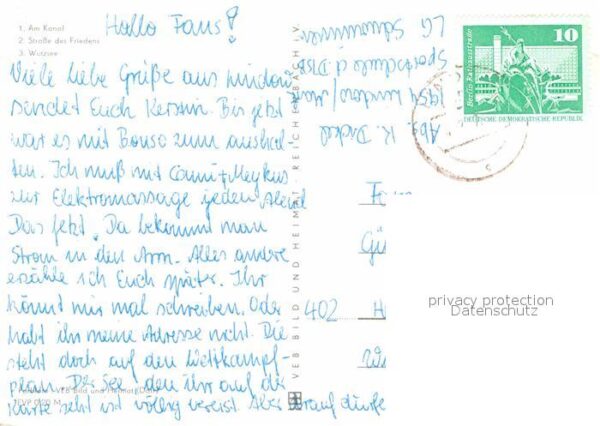 Hallo Fans!
1. Am Kanal
2. Straße des Friedens
3. Wutzsee
Viele liebe Grüße aus Lindow
sendet Euch Kerstin. Bis jetzt
war es mit Bonso zum aushal-
ten. Ich muß mit Conni + Meykus
zur Elektromassage jeden Abend
Das fetzt. Da bekommt man
Strom in den Arm. Alles andere
erzähle ich Euch später. Ihr
könnt mir mal schreiben. Oder
habt ihr meine Adresse nicht. Die
steht doch auf den Wettkampf-
plan. Der See den ihr auf der
Karte seht ist völlig vereist. Aber darauf dürfe
VEB Bild und Heimat
VEB BILD UND HEIMAT REICHENBACH I. V.
Abs. K.
1954 Lindow/
Sportschule d.
LG Schwimmen
10
Berlin Rathausstraße
DEUTSCHE DEMOKRATISCHE REPUBLIK
402 H
privacy protection
Datenschutz